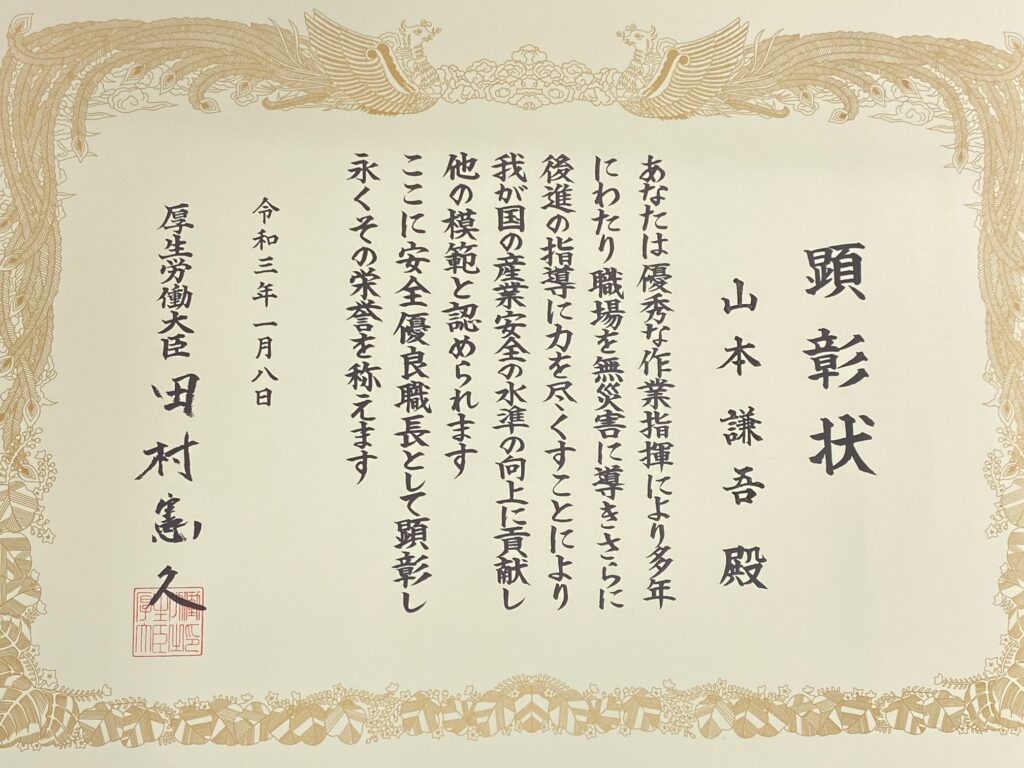 顕彰状
山本謙吾殿
あなたは優秀な作業指揮により多年
にわたり職場を無災害に導きさらに
後進の指導に力を尽くすことにより
我が国の産業安全の水準の向上に貢献し
他の模範と認められます
ここに安全優良職長として顕彰し
永くその栄誉を称えます
令和三年一月八日
厚生労働大臣 田村憲久